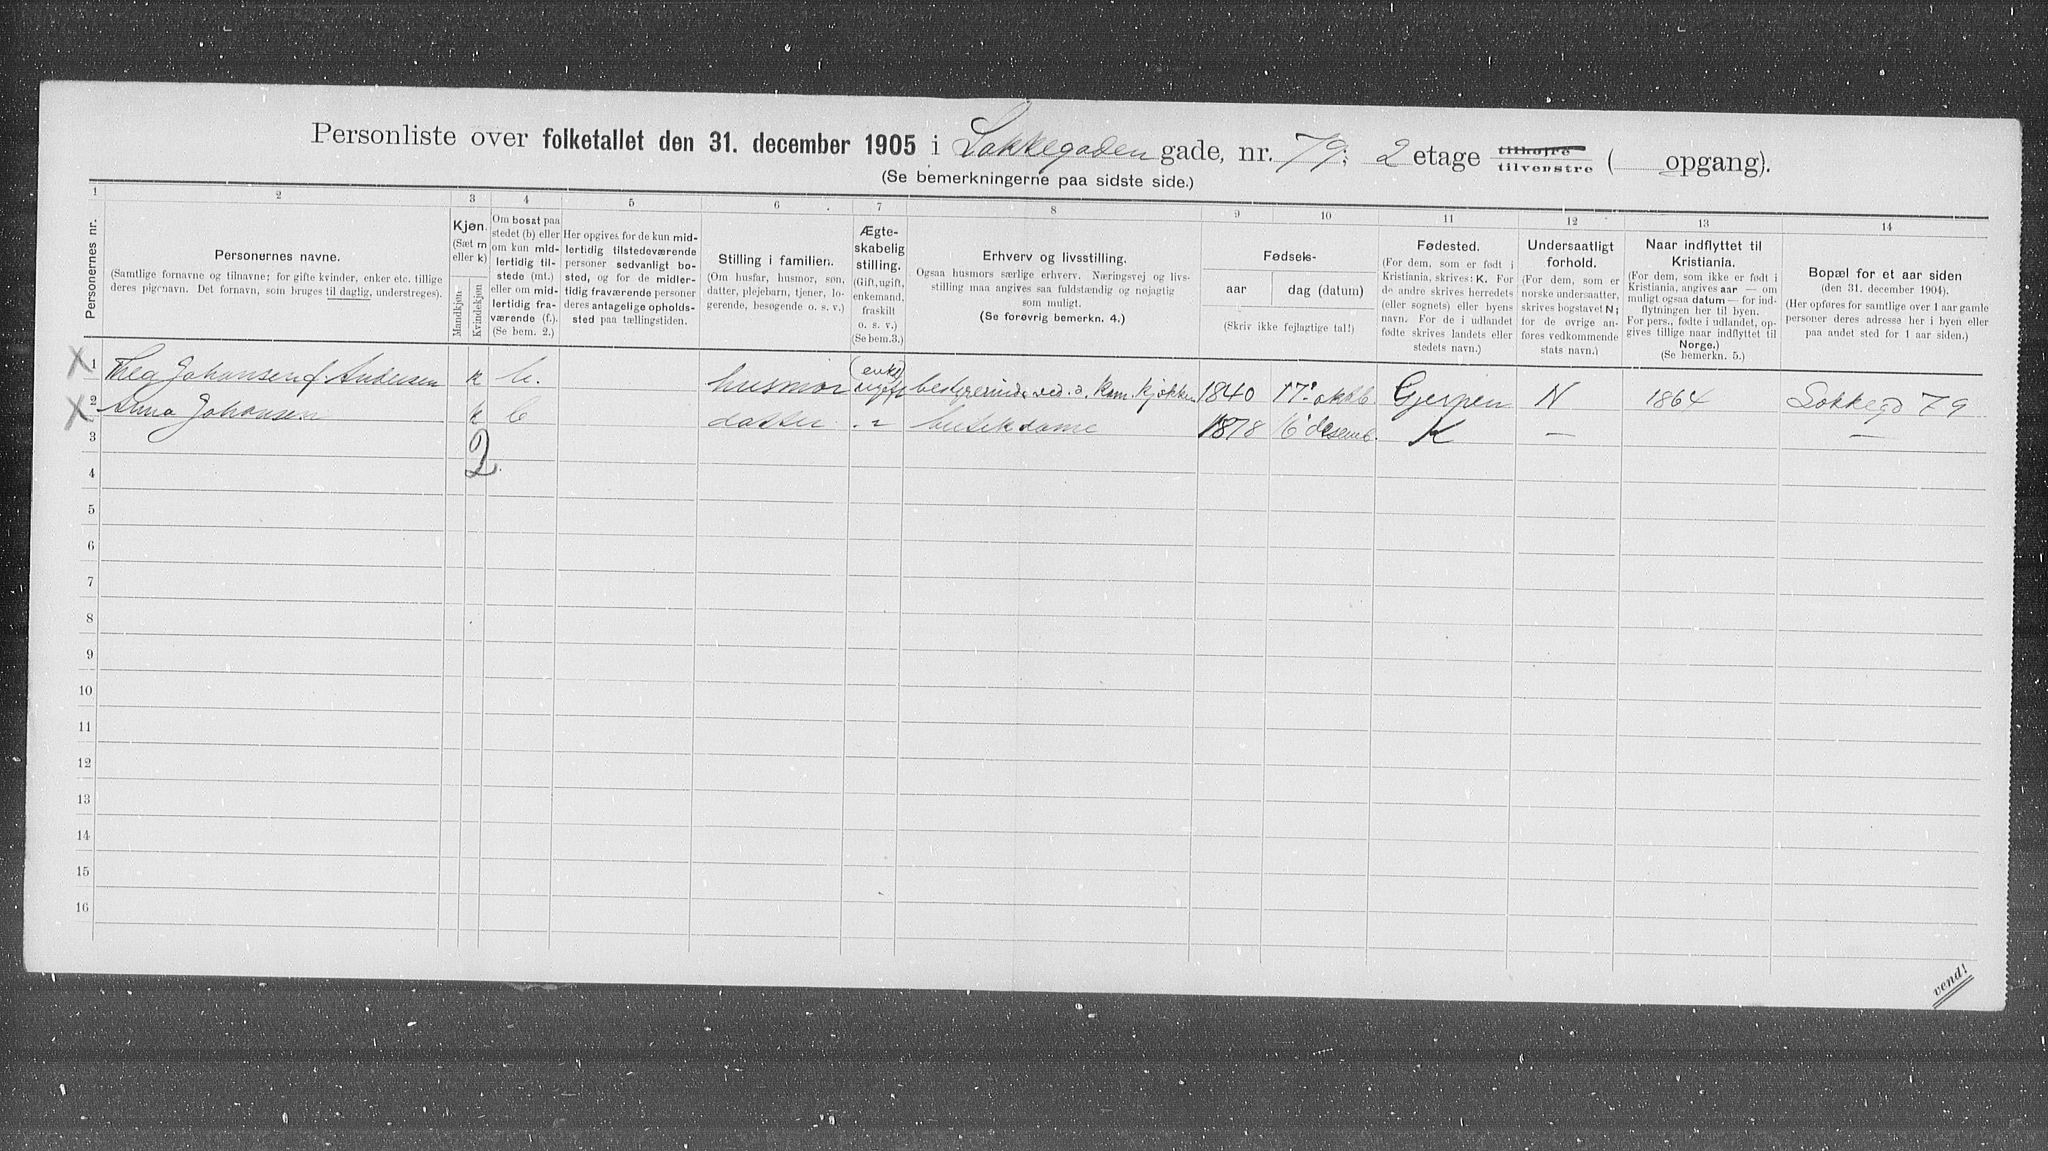 Personliste over folketallet den 31. december 1905 i Lakkegaden gade, nr. 79; 2 etage tilhøjre tilvenstre ( opgang).
(Se bemerkningerne paa sidste side.)
1 2 3 4 5 6 7 8 9 10 11 12 13 14
Personernes nr.
Personernes navne.
(Samtlige fornavne og tilnavne; for gifte kvinder, enker etc. tillige
deres pigenavn. Det fornavn, som bruges til daglig, understreges).
Kjøn.
(Sæt m
eller k)
Mandkjøn.
Kvindekjøn
Om bosat paa
stedet (b) eller
om kun mid-
lertidig til-
stede (mt.)
eller om mid-
lertidig fra-
værende (f.).
(Se bem. 2.)
Her opgives for de kun mid-
lertidig tilstedeværende
personer sedvanligt bo-
sted, og for de midler-
tidig fraværende personer
deres antagelige opholds-
sted paa tællingstiden.
Stilling i familien.
(Om husfar, husmor, søn,
datter, plejebarn, tjener, lo-
gerende, besøgende o. s. v.)
Ægte-
skabelig
stilling.
(Gift, ugift,
enkemand,
fraskilt
o. s. v.)
(Se bem.3.)
Erhverv og livsstilling.
Ogsaa husmors særlige erhverv. Næringsvej og livs-
stilling maa angives saa fuldstændig og nøjagtig
som muligt.
(Se forøvrig bemerkn. 4.)
Fødsels-
aar
dag (datum)
(Skriv ikke fejlagtige tal!)
Fødested.
(For dem, som er født i
Kristiania, skrives: K. For
de andre skrives herredets
(eller sognets) eller byens
navn. For de i udlandet
fødte skrives landets eller
stedets navn.)
Undersaatligt
forhold.
(For dem, som er
norske undersaatter,
skrives bogstavet N;
for de øvrige an-
føres vedkommende
stats navn.)
Naar indflyttet til
Kristiania.
(For dem, som ikke er født i
Kristiania, angives aar — om
muligt ogsaa datum — for ind-
flytningen her til byen.
For pers., fødte i udlandet, op-
gives tillige naar indflyttet til
Norge.)
(Se bemerkn. 5.)
Bopæl for et aar siden
(den 31. december 1904).
(Her opføres for samtlige over 1 aar gamle
personer deres adresse her i byen eller
paa andet sted for 1 aar siden.)
X 1 Johansen f. Andersen k b. husmor (enke) ugift ved kjøkken 1840 17' oktb. Gjerpen N 1864 Lakkegd 79
X 2 Anna Johansen k b datter butikdame 1878 16' desemb. K — —
3
2.
4
5
6
7
8
9
10
11
12
13
14
15
16
vend!